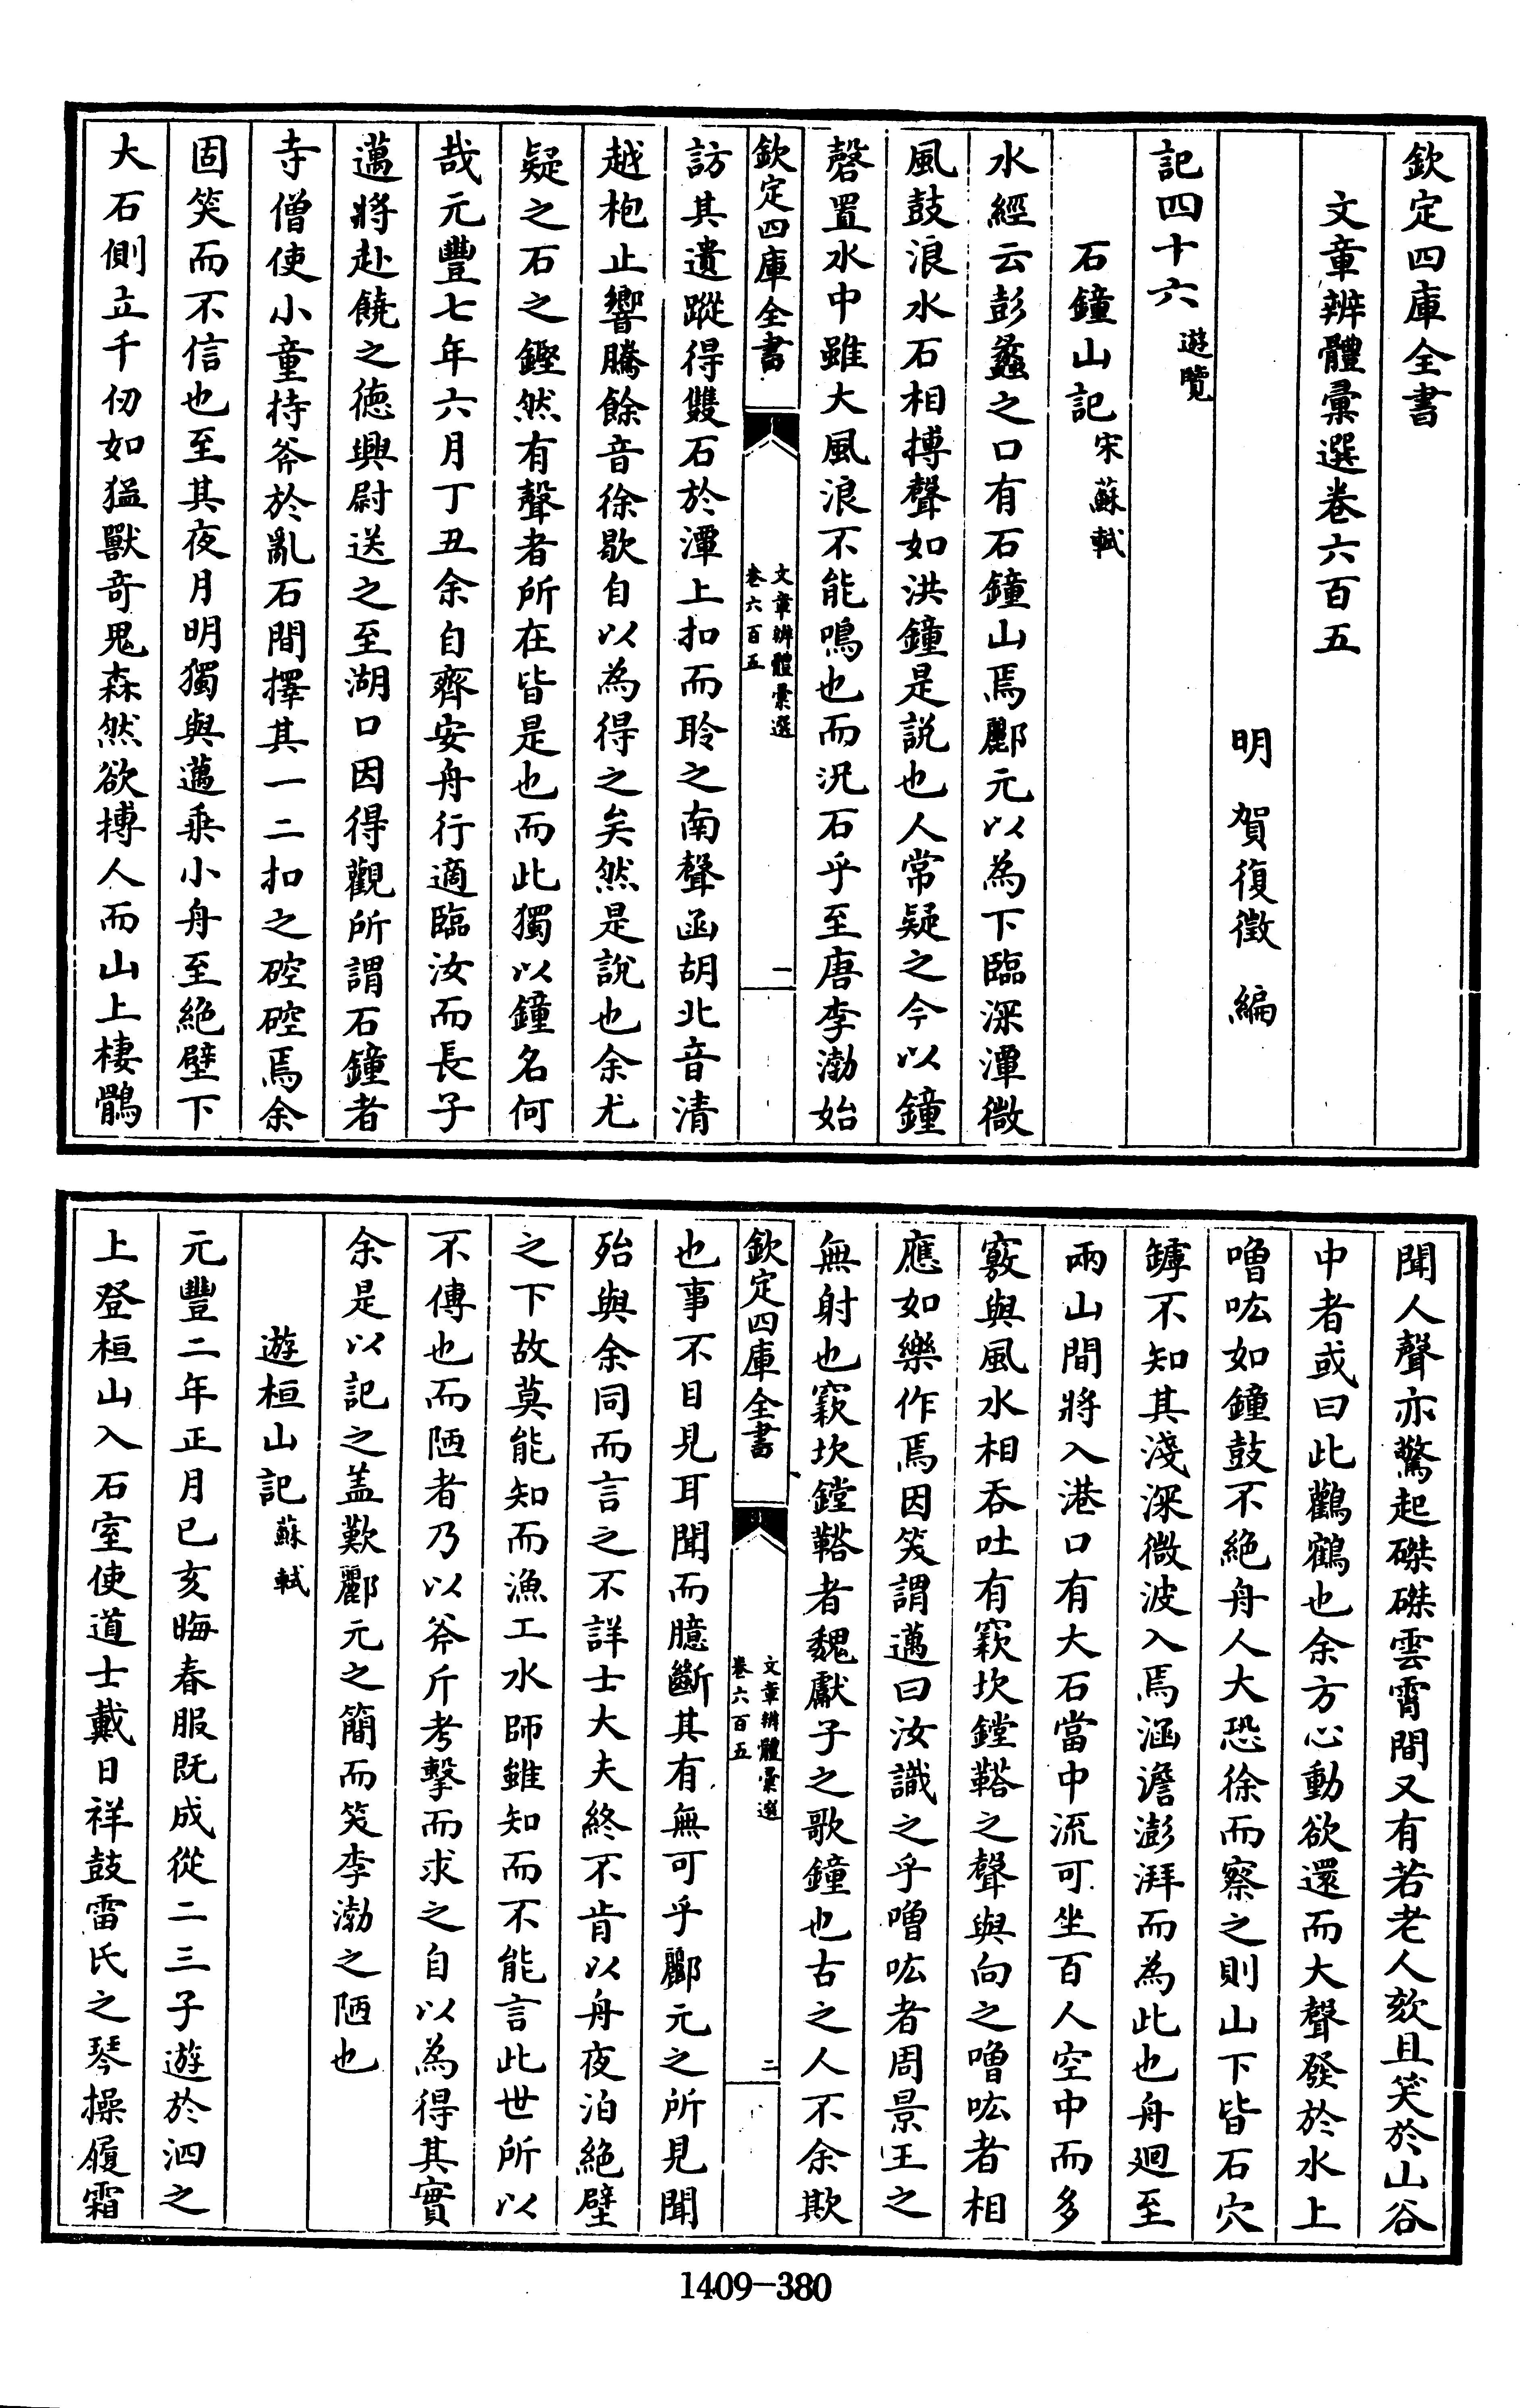 欽定四庫全書
文章辨體彙選卷六百五
明 賀復徵 編
記四十六遊覽
石鐘山記宋蘇軾
水經云彭蠡之口有石鐘山焉酈元以為下臨深潭微
風鼓浪水石相搏聲如洪鐘是說也人常疑之今以鐘
磬置水中雖大風浪不能鳴也而況石乎至唐李渤始
欽定四庫全書
文章辨體彙選
卷六百五
一
訪其遺蹤得雙石於潭上扣而聆之南聲函胡北音清
越枹止響騰餘音徐歇自以為得之矣然是說也余尤
疑之石之鏗然有聲者所在皆是也而此獨以鐘名何
哉元豐七年六月丁丑余自齊安舟行適臨汝而長子
邁將赴饒之德興尉送之至湖口因得觀所謂石鐘者
寺僧使小童持斧於亂石間擇其一二扣之硿硿焉余
固笑而不信也至其夜月明獨與邁乘小舟至絕壁下
大石側立千仞如猛獸奇鬼森然欲搏人而山上棲鶻
聞人聲亦驚起磔磔雲霄間又有若老人欬且笑於山谷
中者或曰此鸛鶴也余方心動欲還而大聲發於水上
噌吰如鐘鼓不絕舟人大恐徐而察之則山下皆石穴
罅不知其淺深微波入焉涵澹澎湃而為此也舟廻至
兩山間將入港口有大石當中流可坐百人空中而多
竅與風水相吞吐有窾坎鏜鞳之聲與向之噌吰者相
應如樂作焉因笑謂邁曰汝識之乎噌吰者周景王之
無射也窾坎鏜鞳者魏獻子之歌鐘也古之人不余欺
欽定四庫全書
文章辨體彙選
卷六百五
二
也事不目見耳聞而臆斷其有無可乎酈元之所見聞
殆與余同而言之不詳士大夫終不肯以舟夜泊絕壁
之下故莫能知而漁工水師雖知而不能言此世所以
不傳也而陋者乃以斧斤考擊而求之自以為得其實
余是以記之盖歎酈元之簡而笑李渤之陋也
遊桓山記蘇軾
元豐二年正月己亥晦春服既成從二三子遊於泗之
上登桓山入石室使道士戴日祥鼓雷氏之琴操履霜
1409-380